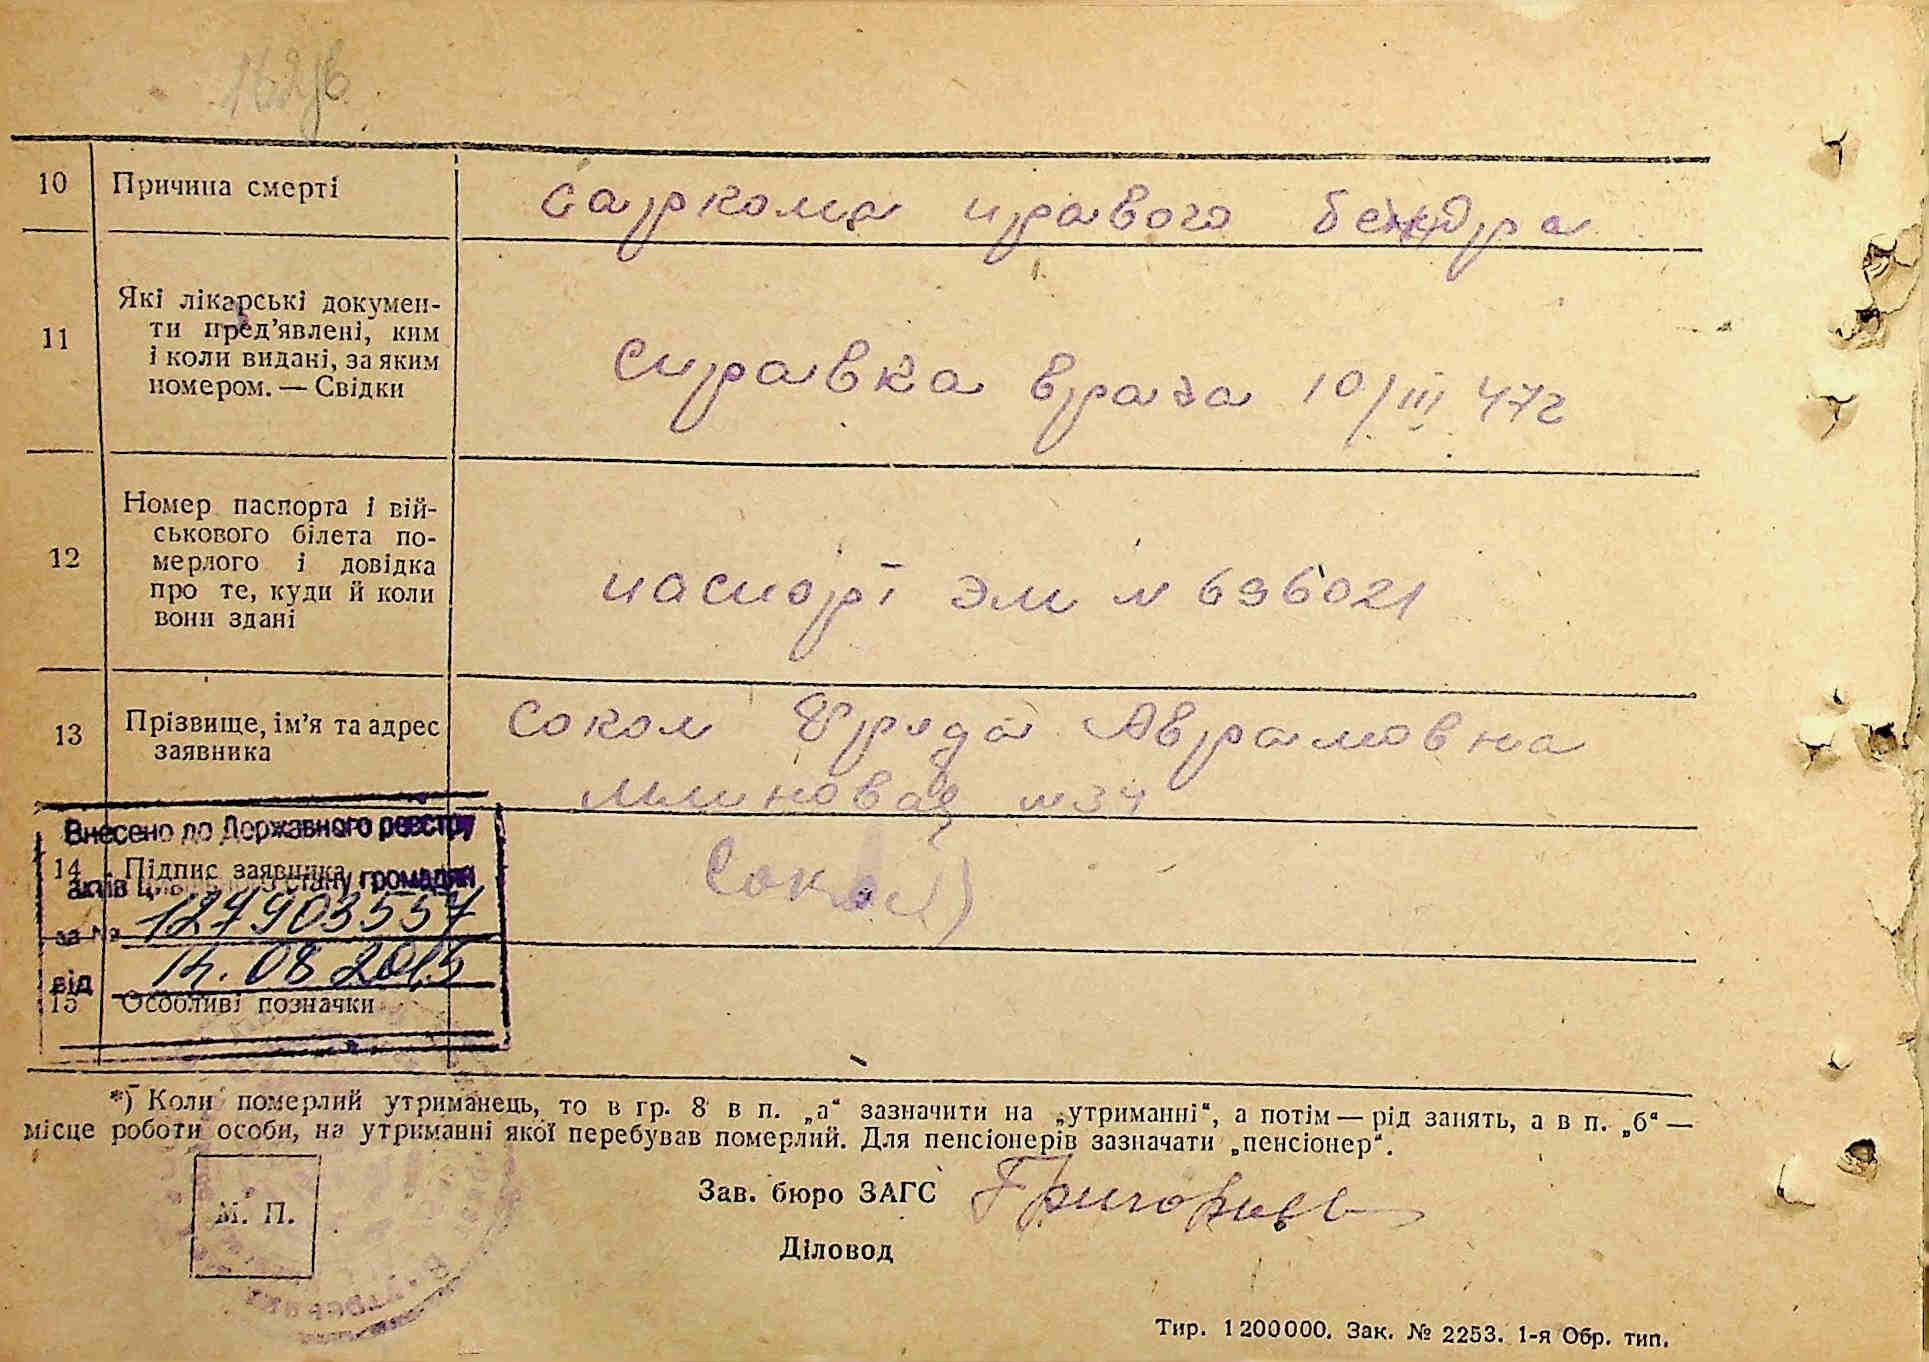 10 Причина смерті саркома правого бедра
11 Які лікарські докумен-
ти пред’явлені, ким
і коли видані, за яким
номером. — Свідки
справка врача 10/III 47г
12 Номер паспорта і вій-
ськового білета по-
мерлого і довідка
про те, куди й коли
вони здані
паспорт ЭМ N 696021
13 Прізвище, ім’я та адрес
заявника
Сокол Фрида Аврамовна
Млиновая N 34
Внесено до Державного реєстру
14 Підпис заявника Сокол
актів цивільного стану громадян
за № 127903557
від 14.08 2015
15 Особливі позначки
*) Коли померлий утриманець, то в гр. 8 в п. „а“ зазначити на „утриманні“, а потім — рід занять, а в п. „б“ —
місце роботи особи, на утриманні якої перебував померлий. Для пенсіонерів зазначати „пенсіонер“.
М. П.
Зав. бюро ЗАГС Григорьев
Діловод
Тир. 1200000. Зак. № 2253. 1-я Обр. тип.